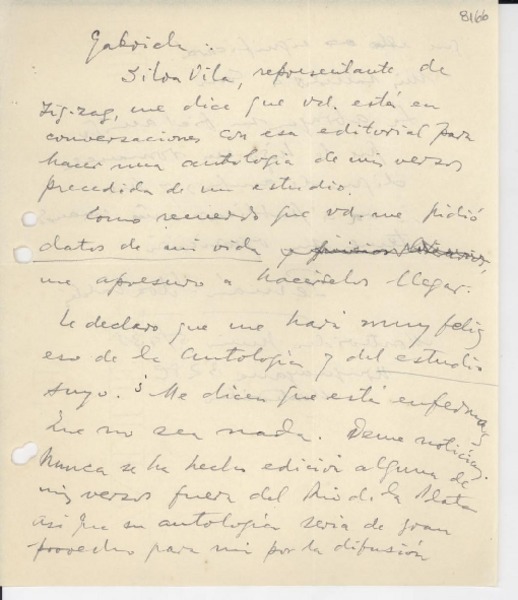 8166
Gabriela:
Silva Vila, representante de
Zig-zag, me dice que vd. está en
conversaciones con esa editorial para
hacer una antología de mis versos
precedida de un estudio.
Como recuerdo que vd. me pidió
datos de mi vida
me apresuro a hacérselos llegar.
Le declaro que me hará muy feliz
eso de la antología y del estudio
suyo. Me dicen que está enferma
Que no sea nada. Deme noticias.
Nunca se ha hecho edición alguna de
mis versos fuera del Rio de la Plata
así que su antología sería de gran
provecho para mi por la difusión